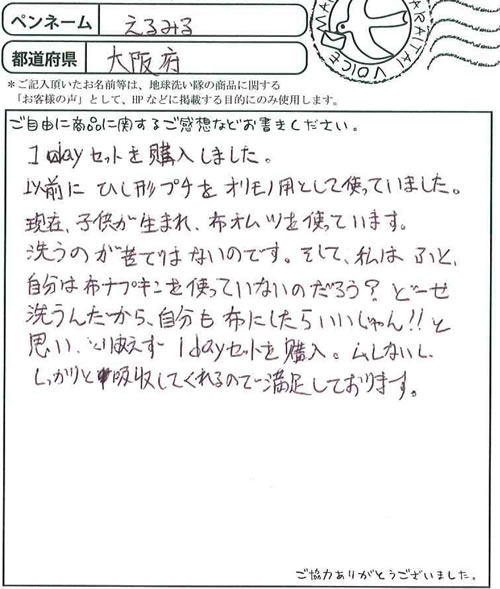 ペンネーム えるみる
都道府県 大阪府
*ご記入頂いたお名前等は、地球洗い隊の商品に関する
「お客様の声」として、HPなどに掲載する目的にのみ使用します。
ARAITAI VOICE
ご自由に商品に関するご感想などお書きください。
1dayセットを購入しました。
以前に ひし形プチを オリモノ用として使っていました。
現在、子供が生まれ、布オムツを使っています。
洗うのが苦ではないのです。そして、私は ふと、
自分は布ナプキンを使っていないのだろう? どーせ
洗うんだから、自分も 布にしたらいいじゃん!! と
思い、とりあえず 1dayセットを購入。ムレないし、
しっかりと吸収してくれるので満足しております。
ご協力ありがとうございました。